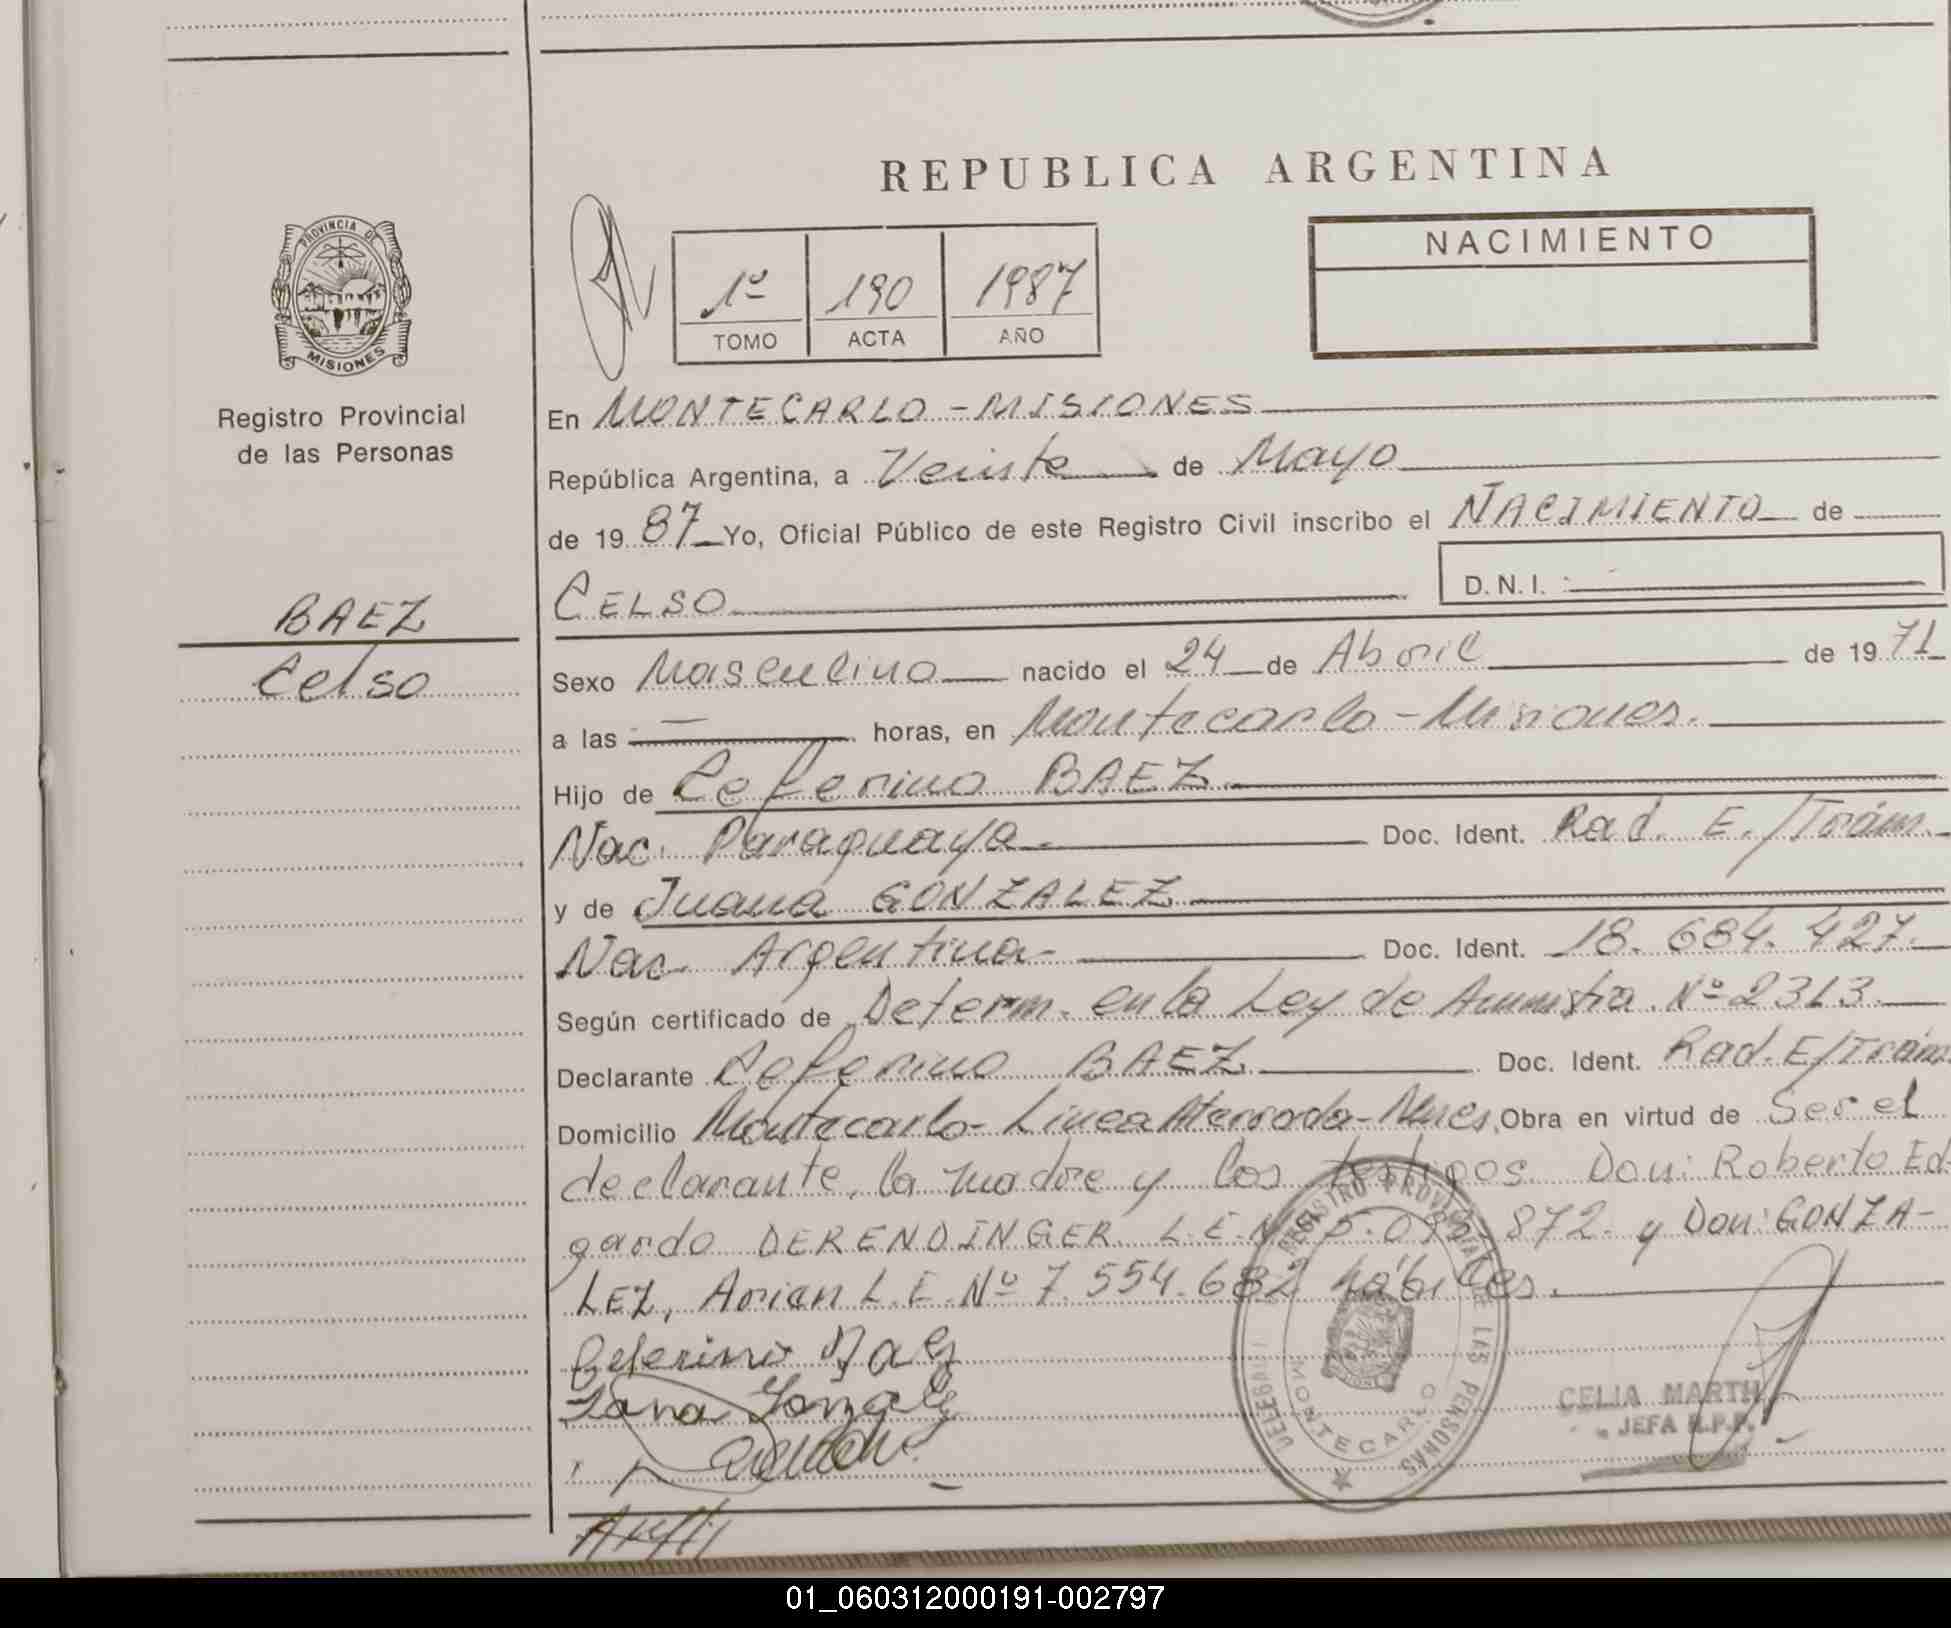 REPUBLICA ARGENTINA
NACIMIENTO
1º 190 1987
TOMO ACTA AÑO
PROVINCIA DE
MISIONES
Registro Provincial
de las Personas
BAEZ
Celso
En MONTECARLO - MISIONES
República Argentina, a Veinte de Mayo
de 19 87 Yo, Oficial Público de este Registro Civil inscribo el NACIMIENTO de
CELSO D.N.I. :
Sexo Masculino nacido el 24 de Abril de 19 71
a las — horas, en Montecarlo - Misiones.
Hijo de Ceferino BAEZ
Nac. Paraguaya. Doc. Ident. Rad. E./Trám.
y de Juana GONZALEZ
Nac. Argentina- Doc. Ident. 18.684.427.
Según certificado de Determ. en la Ley de Amnistia Nº 2313
Declarante Ceferino BAEZ Doc. Ident. Rad. E/Trám.
Domicilio Montecarlo- Linea Aterrada- Mnes. Obra en virtud de Ser el
declarante, la madre y los testigos. Don: Roberto Ed-
gardo DERENDINGER L.E.Nº 5.093.872- y Don: GONZA-
LEZ, Arian L.E. Nº 7.554.682 hábiles.
Ceferino Baez
Juana Gonzalez
REGISTRO PROVINCIAL DE LAS PERSONAS
MONTECARLO
CELIA MARTH
JEFA R.P.P.
01_060312000191-002797